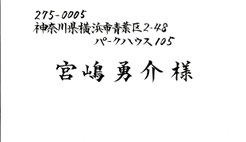 275-0005
神奈川県横浜市青葉区2-48
パークハウス105
宮嶋勇介様